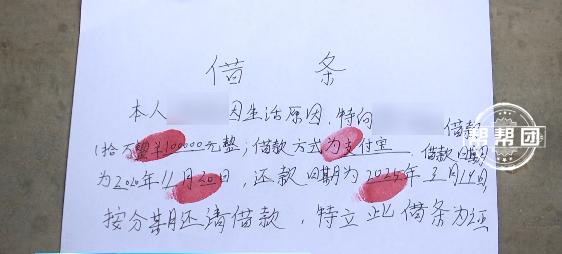 借 条
本人 因生活原因，特向 借款
(拾万整￥100000元整；借款方式为支付宝，借款日期
为2020年11月20日，还款日期为2025年3月19日
按分期还清借款，特立此借条为证
帮帮团